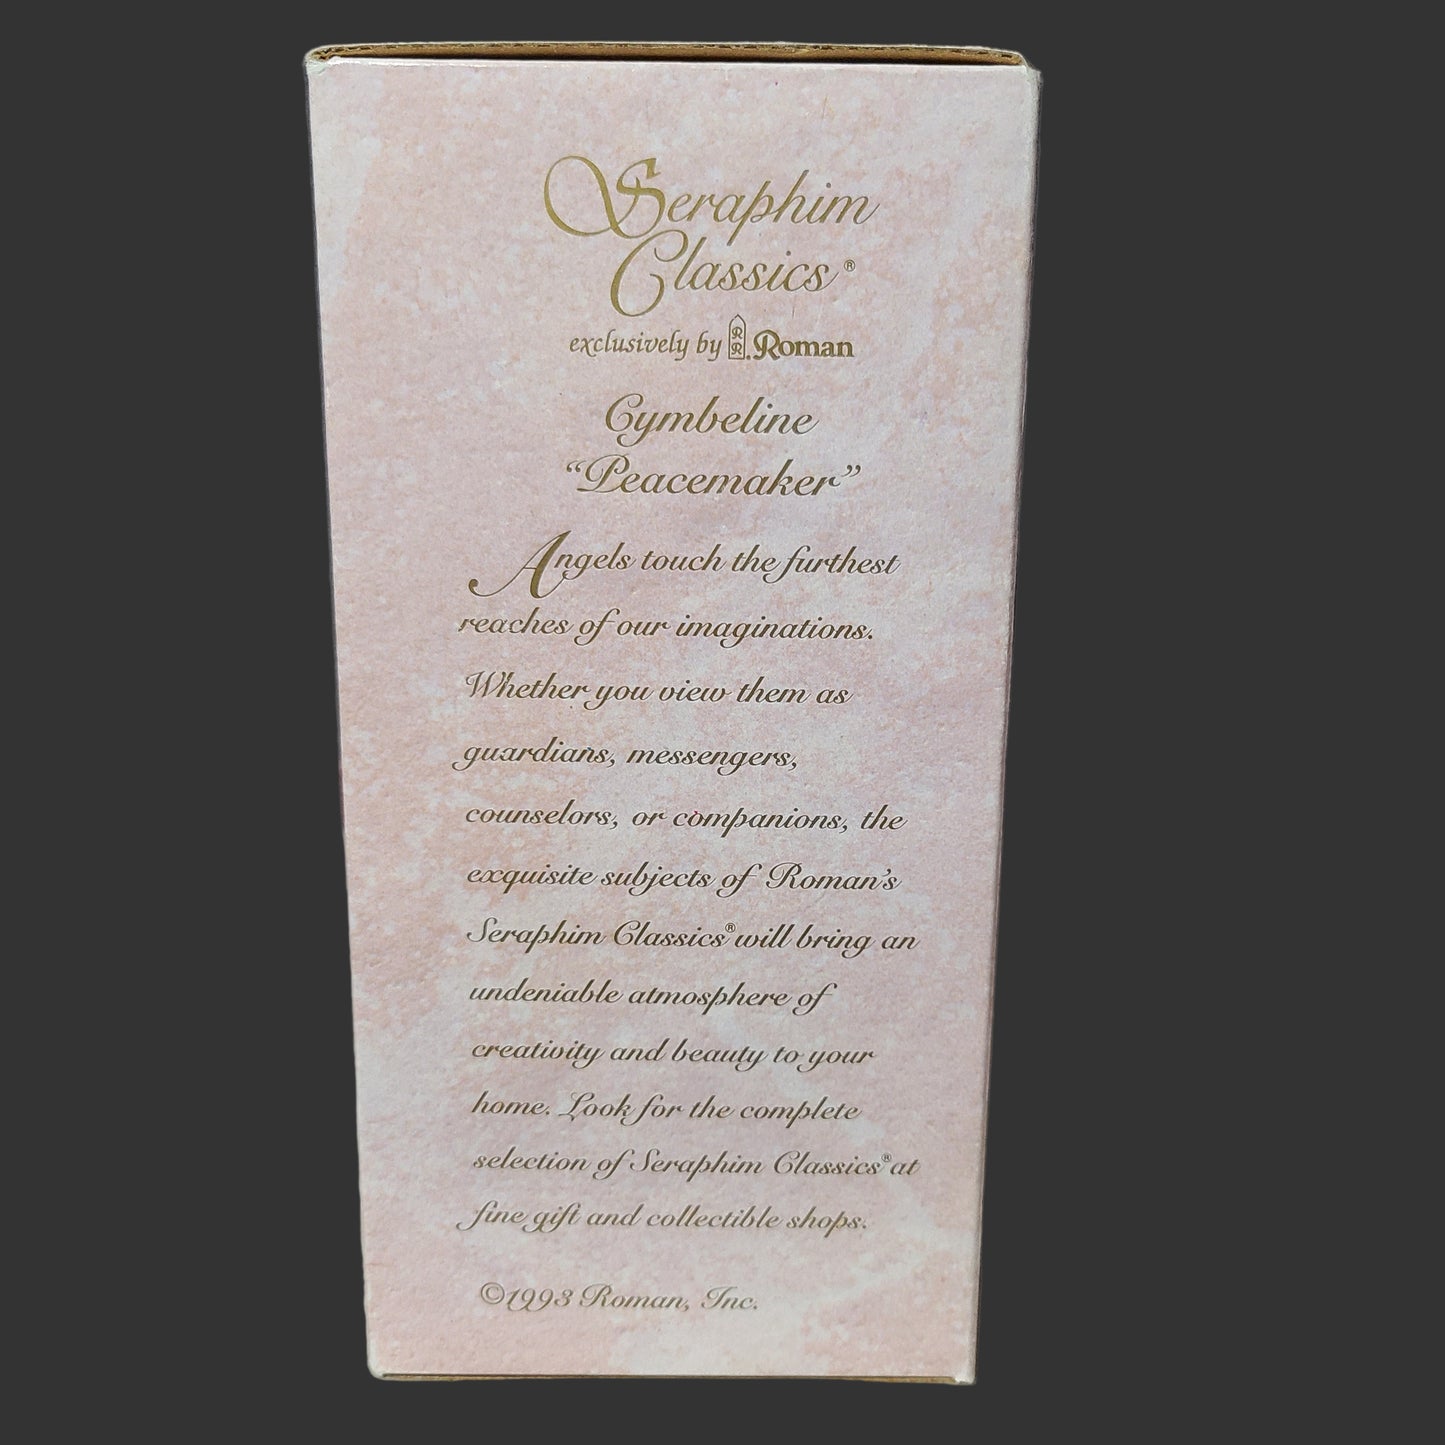 Seraphim
Classics®
exclusively by RR. Roman
Cymbeline
“Peacemaker”
Angels touch the furthest
reaches of our imaginations.
Whether you view them as
guardians, messengers,
counselors, or companions, the
exquisite subjects of Roman’s
Seraphim Classics® will bring an
undeniable atmosphere of
creativity and beauty to your
home. Look for the complete
selection of Seraphim Classics® at
fine gift and collectible shops.
©1993 Roman, Inc.